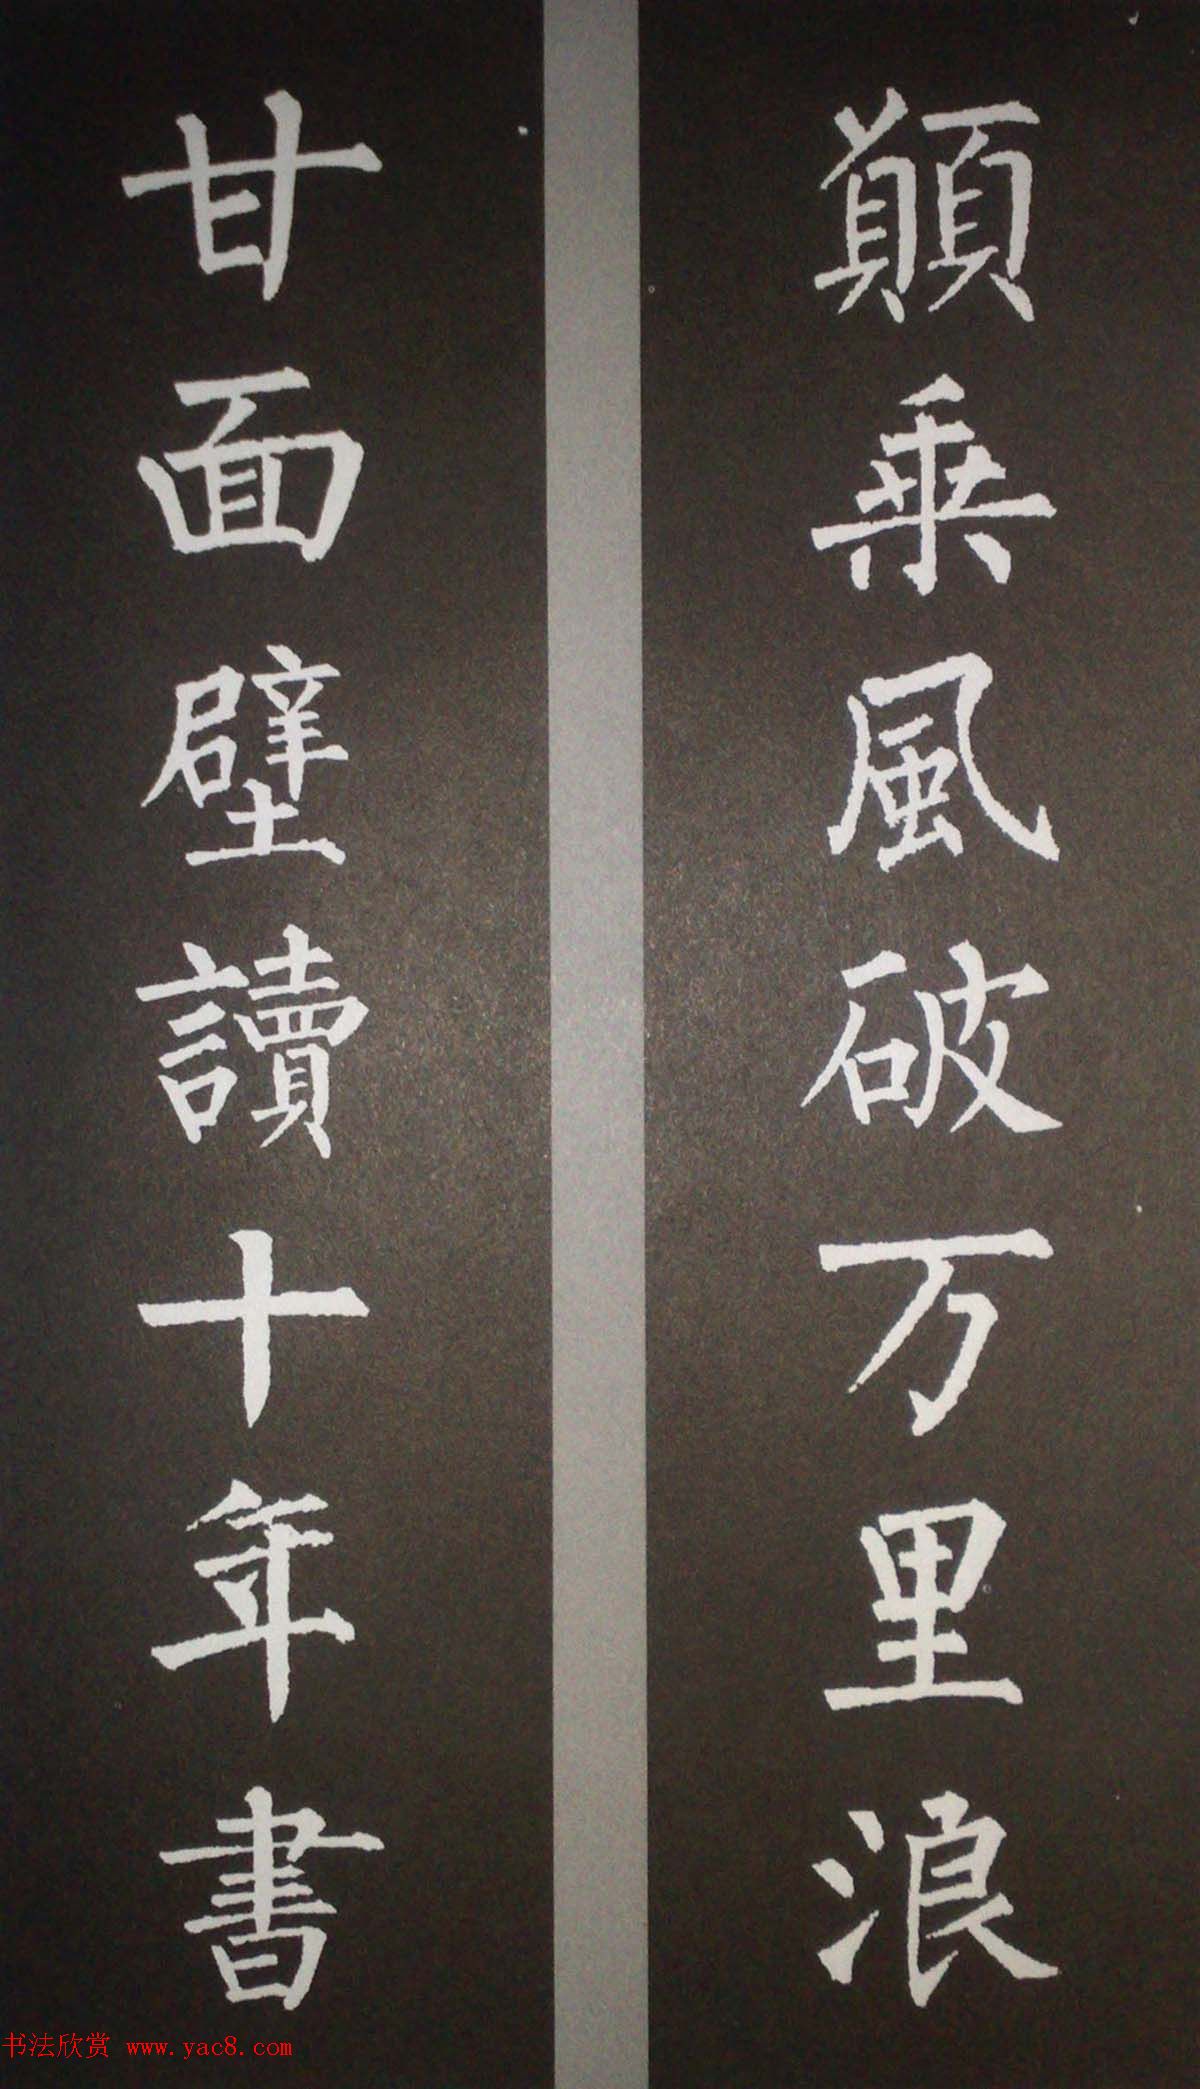 願乘風破万里浪
甘面壁讀十年書
书法欣赏 www.yac8.com